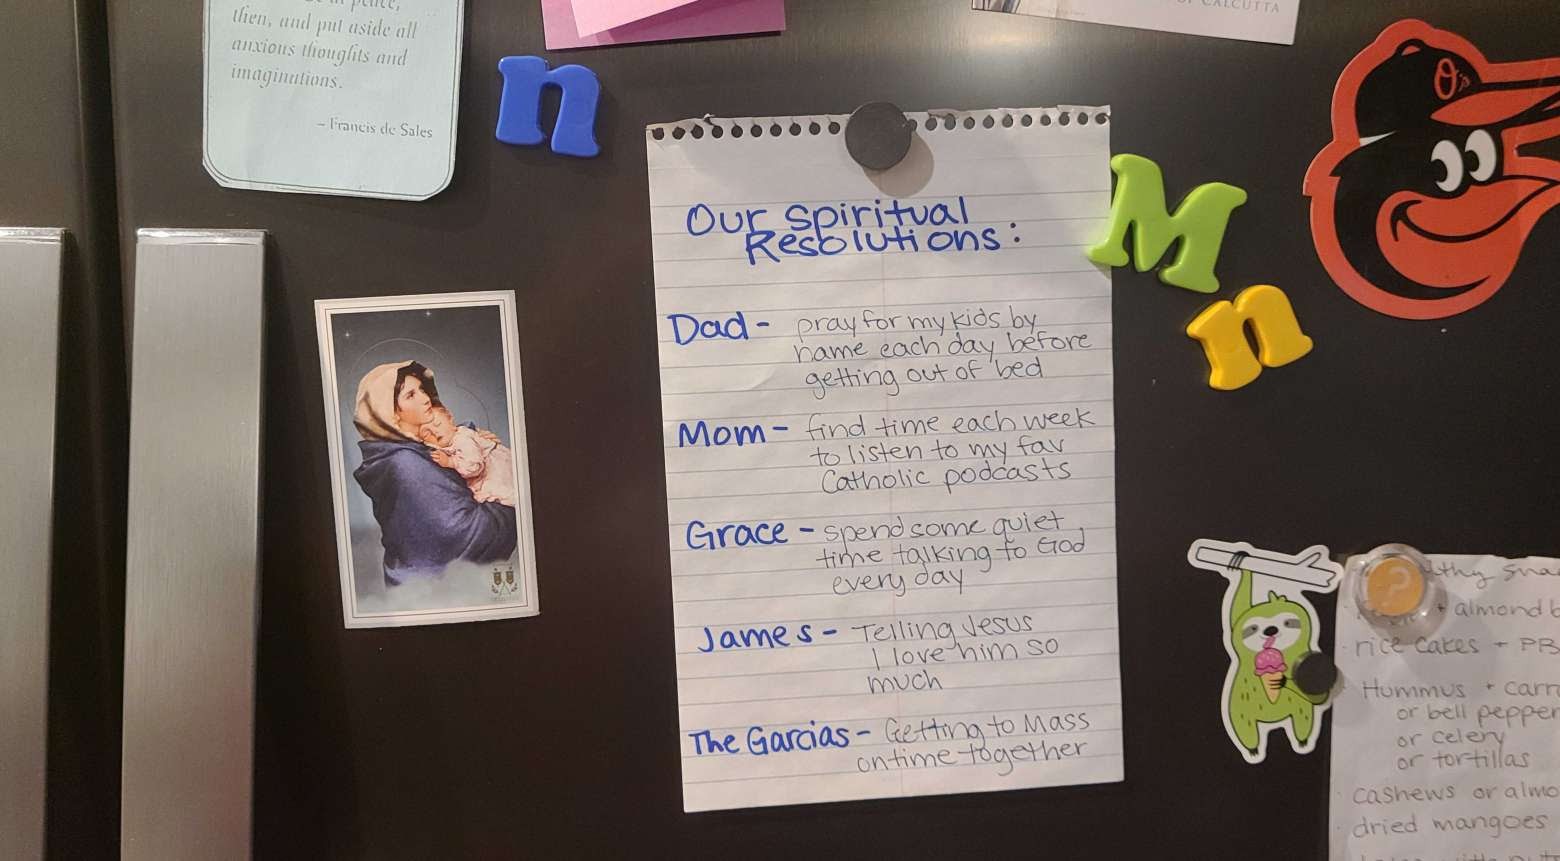 then, and put aside all
anxious thoughts and
imaginations.
– Francis de Sales
CALCUTTA
n
M
n
O's
Our Spiritual
Resolutions:
Dad - pray for my kids by
name each day before
getting out of bed
Mom - find time each week
to listen to my fav
Catholic podcasts
Grace - spend some quiet
time talking to God
every day
James - Telling Jesus
I love him so
much
The Garcias - Getting to Mass
on time together
?
+ almond
· rice cakes + PB
· Hummus + carr
or bell pepper
or celery
or tortillas
· cashews or almo
· dried mangoes